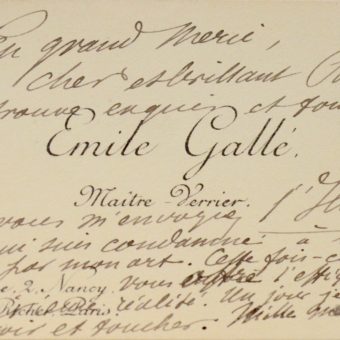 Un grand merci,
cher et brillant
trouve exquis et
Emile Gallé.
Maître-Verrier.
vous m'envoyez l'
qui suis condamné à
par mon art. Cette fois-c
e, 2, Nancy vous
Richer, Paris réalité. Un jour je
voir et toucher. Mille